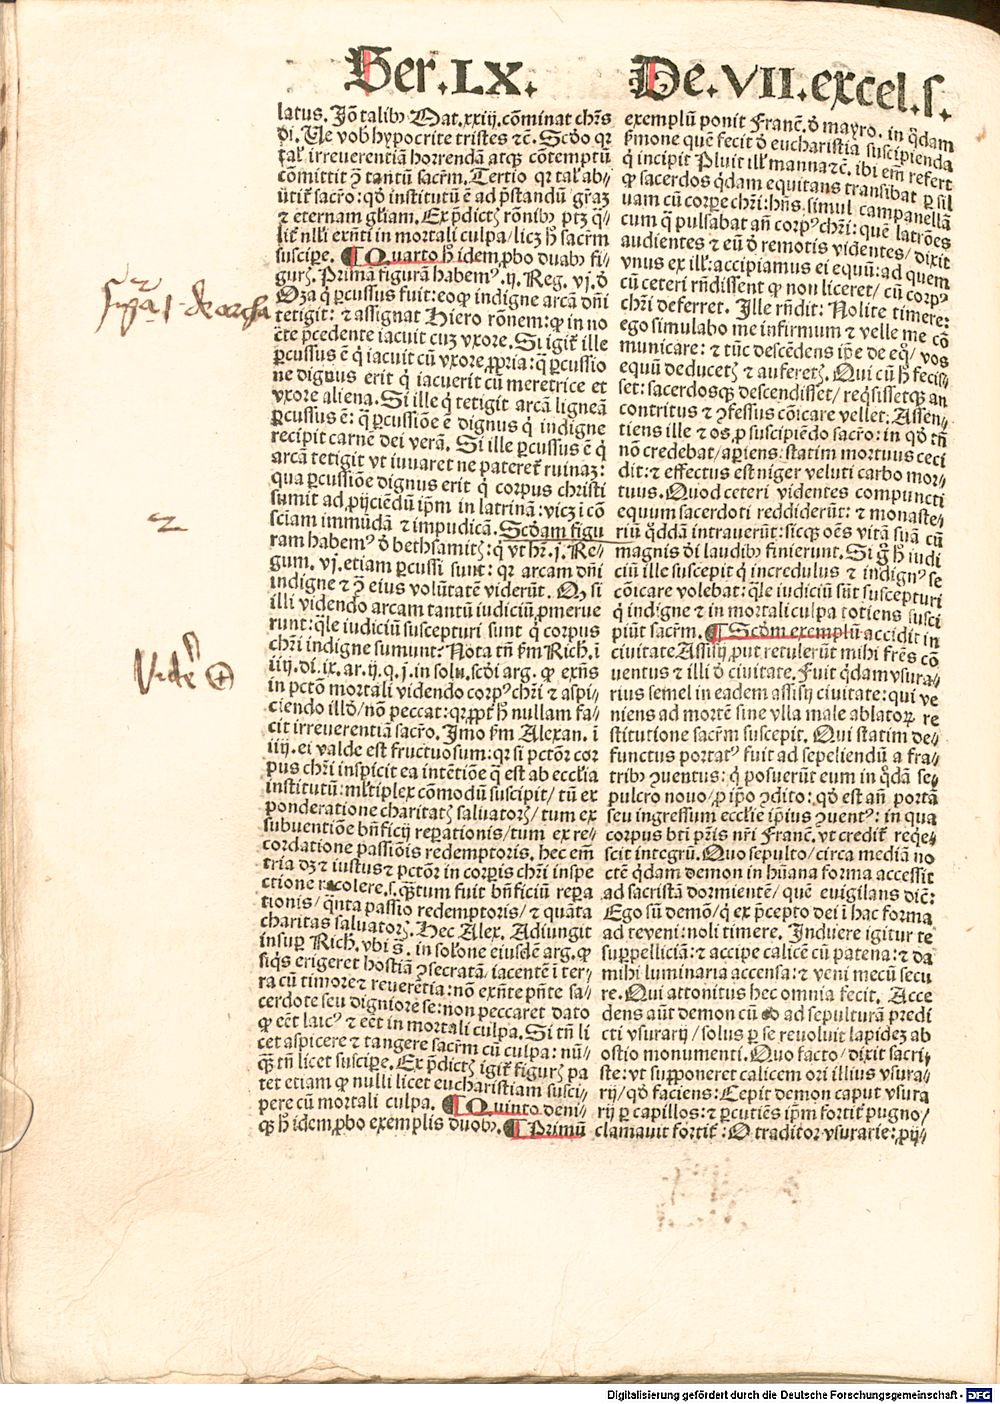 Ser.LX.
De.VII.excel.s.
latus. Jõ talibꝰ Mat.xxiij.cõminat chr̃s
di. Ue vob hypocrite tristes ⁊c̃. Scd̃o qꝛ
tal' irreuerentiã horrendã atqꝫ cõtemptũ
cõmittit ꝯ̃ tantũ sacrm̃. Tertio qꝛ tal' ab⸗
ũtit᷑ sacr̃o: qd̃ institutũ ẽ ad p̃standũ gr̃az
⁊ eternam gl̃iam. Ex p̃dictꝭ rõnibꝰ ptꝫ q̃⸗
lit᷑ nl̃li exñti in mortali culpa/licꝫ h̃ sacrm̃
suscipe. ¶ Quarto h̃ idem ꝓbo duabꝰ fi⸗
gurꝭ. Primã figurã habemꝰ.ij. Reg. vj. d̃
Oza q̃ ꝑcussus fuit: eo ꝙ indigne arcã dñi
tetigit: ⁊ assignat Hiero rõnem: ꝙ in no
cte p̃cedente iacuit cuz vxore. Si igit᷑ ille
ꝑcussus ẽ q̃ iacuit cũ vxore ꝓpria: q̃ ꝑcussio
ne dignus erit q̃ iacuerit cũ meretrice et
vxore aliena. Si ille q̃ tetigit arcã ligneã
ꝑcussus ẽ: q̃ ꝑcussiõe ẽ dignus q̃ indigne
recipit carnẽ dei verã. Si ille ꝑcussus ẽ q̃
arcã tetigit vt iuuaret ne pateret᷑ ruinaz:
qua ꝑcussiõe dignus erit q̃ corpus christi
sumit ad ꝓijciẽdũ ip̃m in latrinã: vicꝫ ĩ cõ
sciam immũdã ⁊ impudicã. Scd̃am figu
ram habemꝰ d̃ bethsamitꝭ: q̃ vt hr̃.j. Re⸗
gum. vj. etiam ꝑcussi sunt: qꝛ arcam dñi
indigne ⁊ ꝯ̃ eius volũtatẽ viderũt. Qꝫ si
illi videndo arcam tantũ iudiciũ ꝓmerue
runt: q̃le iudiciũ suscepturi sunt q̃ corpus
chr̃i indigne sumunt? Nota tñ f̃m Rich. ĩ
iiij. di. ix. ar. ij. q. j. in solu. scd̃i arg. ꝙ exñs
in pctõ mortali videndo corpꝰ chr̃i ⁊ aspi⸗
ciendo illd̃/nõ peccat: qꝛ ꝓpt̃ h̃ nullam fa⸗
cit irreuerentiã sacr̃o. Jmo f̃m Alexan. ĩ
iiij. ei valde est fructuosum: qꝛ si pctõr cor
pus chr̃i inspicit ea intẽtiõe q̃ est ab eccl̃ia
institutũ: ml̃tiplex cõmodũ suscipit/ tũ ex
ponderatione charitatꝭ saluatorꝭ/ tum ex
subuentiõe bñficij reꝑationis/tum ex re⸗
cordatione passiõis redemptoris. hec em̃
tria dꝫ ⁊ iustus ⁊ pctõr in corpis chr̃i inspe
ctione recolere.s. q̃tum fuit bñficiũ reꝑa
tionis/ q̃nta passio redemptoris/ ⁊ quãta
charitas saluatorꝭ. Hec Alex. Adiungit
insuꝑ Rich. vbi s̃. in sol'one eiusdẽ arg. ꝙ
siq̃s erigeret hostiã ꝯsecratã/iacentẽ ĩ ter⸗
ra cũ timore ⁊ reuerẽtia: nõ exñte pñte sa⸗
cerdote seu digniore se: non peccaret dato
ꝙ eẽt laicꝰ ⁊ eẽt in mortali culpa. Si tñ li
cet aspicere ⁊ tangere sacrm̃ cũ culpa: nũ⸗
q̃ tñ licet suscipe. Ex p̃dictꝭ igit᷑ figurꝭ pa
tet etiam ꝙ nulli licet eucharistiam susci⸗
pere cũ mortali culpa. ¶ Quinto deni⸗
qꝫ h̃ idem ꝓbo exemplis duobꝰ. ¶ Primũ
exemplũ ponit Franc̃. d̃ mayro. in q̃dam
f̃mone quẽ fecit d̃ eucharistia suscipienda
q̃ incipit Pluit ill' manna ⁊c̃. ibi em̃ refert
ꝙ sacerdos q̃dam equitans transibat ꝑ sil
uam cũ corpe chr̃i: hñs simul campanellã
cum q̃ pulsabat añ corpꝰ chr̃i: quẽ latrões
audientes ⁊ eũ d̃ remotis videntes/ dixit
vnus ex ill': accipiamus ei equũ: ad quem
cũ ceteri rñdissent ꝙ non liceret/ cũ corpꝰ
chr̃i deferret. Jlle rñdit: Nolite timere:
ego simulabo me infirmum ⁊ velle me cõ
municare: ⁊ tũc descẽdens ip̃e de eq̃/ vos
equũ deducetꝭ ⁊ auferetꝭ. Qui cũ h̃ fecis⸗
set: sacerdosqꝫ descendisset/ req̃sissetqꝫ an
contritus ⁊ ꝯfessus cõicare vellet. Assen⸗
tiens ille ⁊ os ꝓ suscipiẽdo sacr̃o: in qd̃ tñ
nõ credebat/ aꝑiens: statim mortuus ceci
dit: ⁊ effectus est niger veluti carbo mor⸗
tuus. Quod ceteri videntes compuncti
equum sacerdoti reddiderũt: ⁊ monaste⸗
riũ q̃ddã intrauerũt: sicqꝫ oẽs vitã suã cũ
magnis dei laudibꝰ finierunt. Si g̃ h̃ iudi
ciũ ille suscepit q̃ incredulus ⁊ indignꝰ se
cõicare volebat: q̃le iudiciũ sũt suscepturi
q̃ indigne ⁊ in mortali culpa totiens susci
piũt sacrm̃. ¶ Scd̃m exemplũ accidit in
ciuitate Assisij ꝓut retulerũt mihi fr̃es cõ
uentus ⁊ illi d̃ ciuitate. Fuit q̃dam vsura⸗
rius semel in eadem assisij ciuitate: qui ve
niens ad mortẽ sine vlla male ablatoꝝ re
stitutione sacrm̃ suscepit. Qui statim de⸗
functus portatꝰ fuit ad sepeliendũ a fra⸗
tribꝰ ꝯuentus: q̃ posuerũt eum in q̃dã se⸗
pulcro nouo/ ꝓ ip̃o ꝯdito: qd̃ est añ portã
seu ingressum eccl̃ie ip̃ius ꝯuentꝰ: in qua
corpus bt̃i pr̃is nr̃i Franc̃. vt credit᷑ req̃e⸗
scit integrũ. Quo sepulto/ circa mediã no
ctẽ q̃dam demon in hũana forma accessit
ad sacristã dormientẽ/ quẽ euigilans dic̃:
Ego sũ demõ/ q̃ ex p̃cepto dei ĩ hac forma
ad te veni: noli timere. Jnduere igitur te
suꝑpelliciã: ⁊ accipe calicẽ cũ patena: ⁊ da
mihi luminaria accensa: ⁊ veni mecũ secu
re. Qui attonitus hec omnia fecit. Acce
dens aũt demon cũ eo ad sepulturã predi
cti vsurarij/ solus ꝑ se reuoluit lapidez ab
ostio monumenti. Quo facto/ dixit sacri⸗
ste: vt supponeret calicem ori illius vsura⸗
rij/ qd̃ faciens: Cepit demon caput vsura
rij ꝑ capillos: ⁊ ꝑcutiẽs ip̃m fortit᷑ pugno/
clamauit fortit᷑: O traditor vsurarie: ꝓij⸗
de archa
2
Vide ⊕
Digitalisierung gefördert durch die Deutsche Forschungsgemeinschaft - DFG